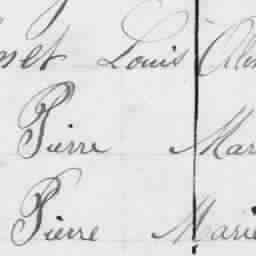 Louis
Pierre Mar
Pierre Marie